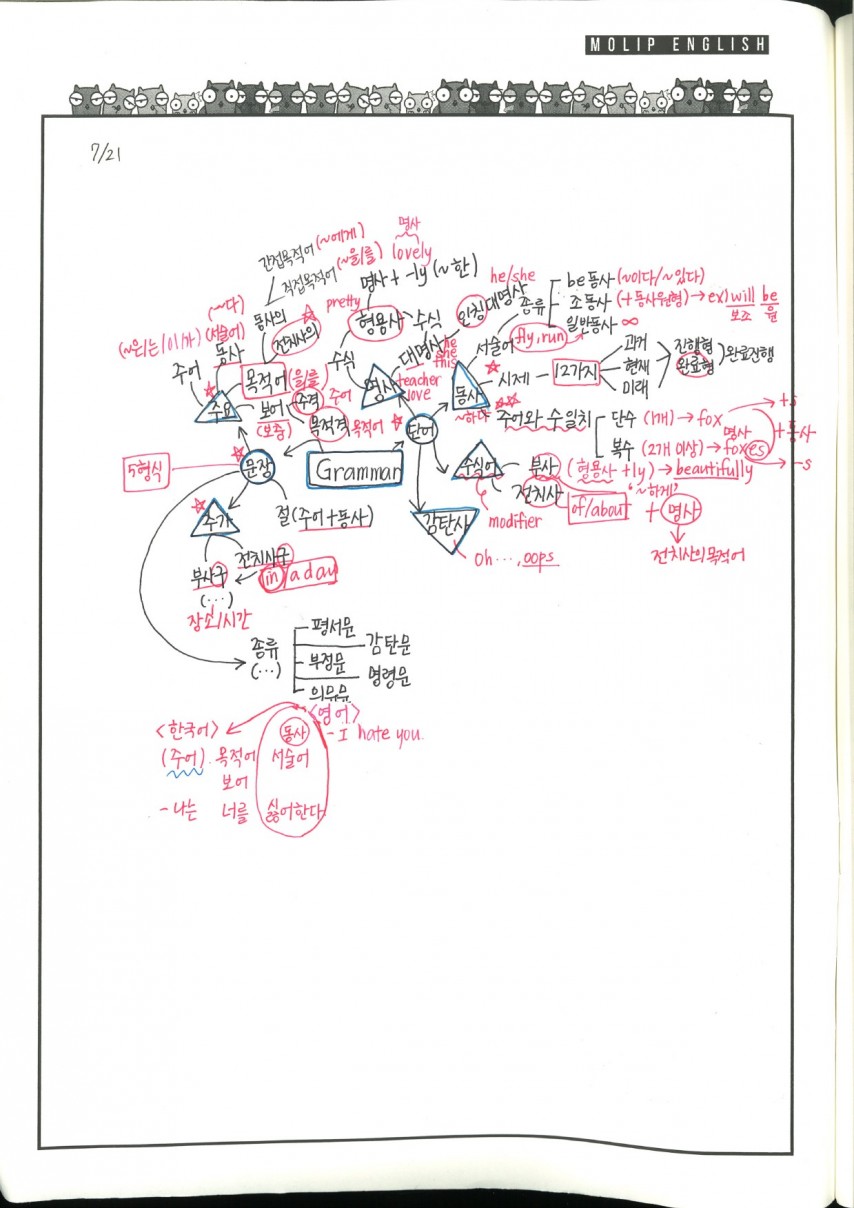 MOLIP ENGLISH
7/21
간접목적어 (~에게)
직접목적어 (~을/를)
명사
lovely
명사 + -ly (~한)
he/she
인칭대명사
pretty
형용사
수식
수식
대명사
he
she
this
명사
teacher
love
(~은/는/이/가)
주어
(~다)
(서술어)
동사
동사의
전치사의
목적어 (을/를)
보어
(보충)
주격 주어
목적격 목적어
주요
5형식
문장
Grammar
단어
서술어
종류
be동사 (~이다/~있다)
조동사 (+동사원형) → ex) will be
보조 원
일반동사 ∞
fly, run
동사
~하다
시제 - 12가지
과거
현재
미래
진행형
완료형
완료진행
주어와 수일치
단수 (1개) → fox
+s
명사
복수 (2개 이상) → foxes
-s
+동사
수식어
modifier
부사 (형용사+ly) → beautifully
"~하게"
전치사
of/about + 명사
전치사의목적어
감탄사
Oh…, oops
추가
절 (주어+동사)
전치사구
in a day
부사구
(…)
장소/시간
종류
(…)
평서문
감탄문
부정문
명령문
의문문
<한국어>
<영어>
동사
- I hate you.
(주어) 목적어 서술어
보어
- 나는 너를 싫어한다